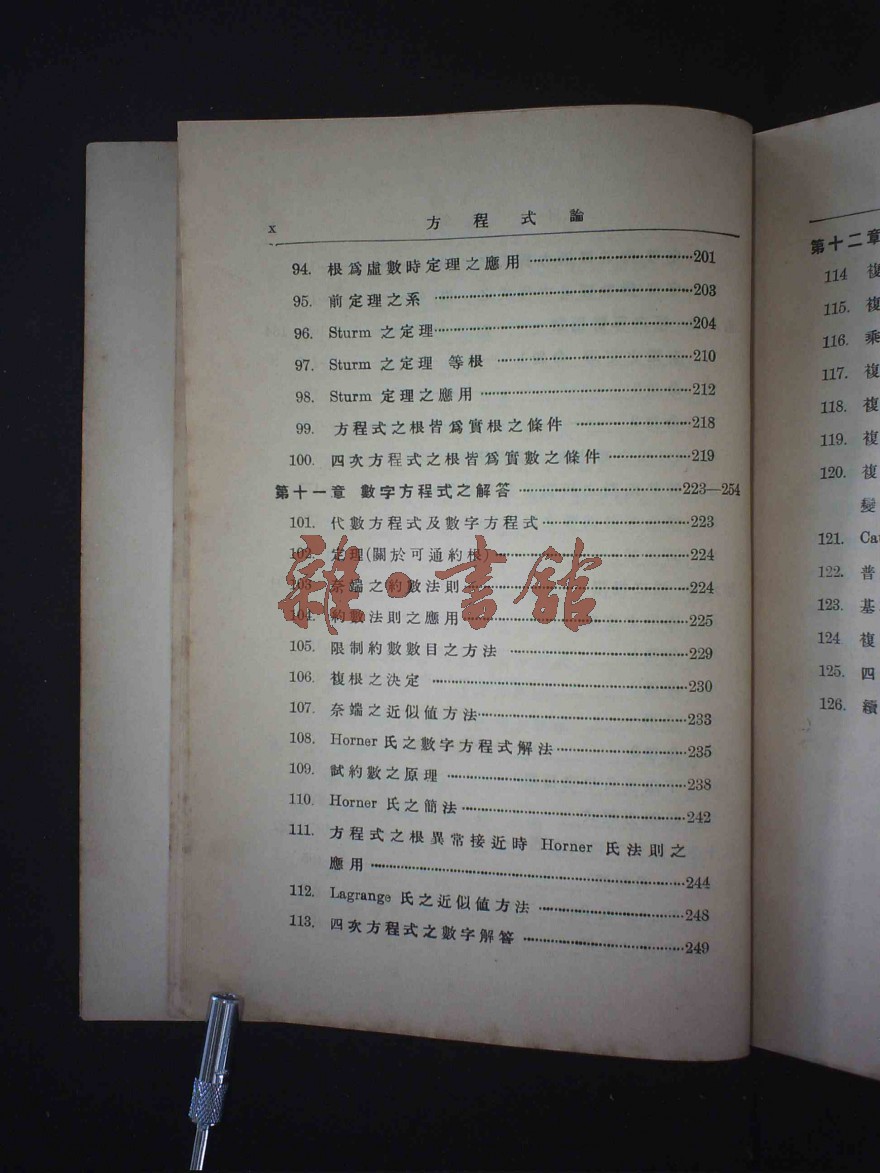 x 方程式論
94. 根爲虛數時定理之應用 ························201
95. 前定理之系 ························203
96. Sturm 之定理························204
97. Sturm 之定理 等根 ························210
98. Sturm 定理之應用 ························212
99. 方程式之根皆爲實根之條件 ························218
100. 四次方程式之根皆爲實數之條件 ························219
第十一章 數字方程式之解答 ························223—254
101. 代數方程式及數字方程式 ························223
102. 定理(關於可通約根) ························224
103. 奈端之約數法則 ························224
104. 約數法則之應用 ························225
105. 限制約數數目之方法 ························229
106. 複根之決定 ························230
107. 奈端之近似値方法························233
108. Horner 氏之數字方程式解法························235
109. 試約數之原理 ························238
110. Horner 氏之簡法························242
111. 方程式之根異常接近時 Horner 氏法則之
應用························244
112. Lagrange 氏之近似値方法 ························248
113. 四次方程式之數字解答 ························249
雜·書館
第十二章
114 複
115. 複
116. 乘
117. 複
118. 複
119. 複
120. 複
變
121. Ca
122. 普
123. 基
124 複
125. 四
126. 續